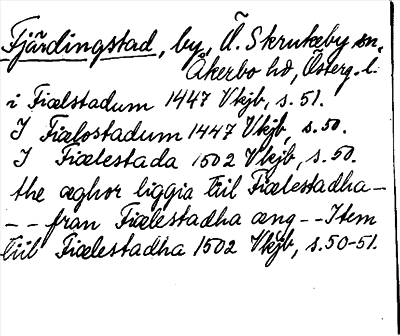 Fjärdingstad, by, Ö. Skrukeby sn,
Åkerbo hd, Österg. l.
i Fiælstadum 1447 Vkjb, s. 51.
I Fiælostadum 1447 Vkjb, s. 50.
I Fiælestada 1502 Vkjb, s. 50.
the æghor liggia tiil Fiælestadha –
– – fran Fiælestadha æng – – Item
tiil Fiælestadha 1502 Vkjb, s. 50-51.